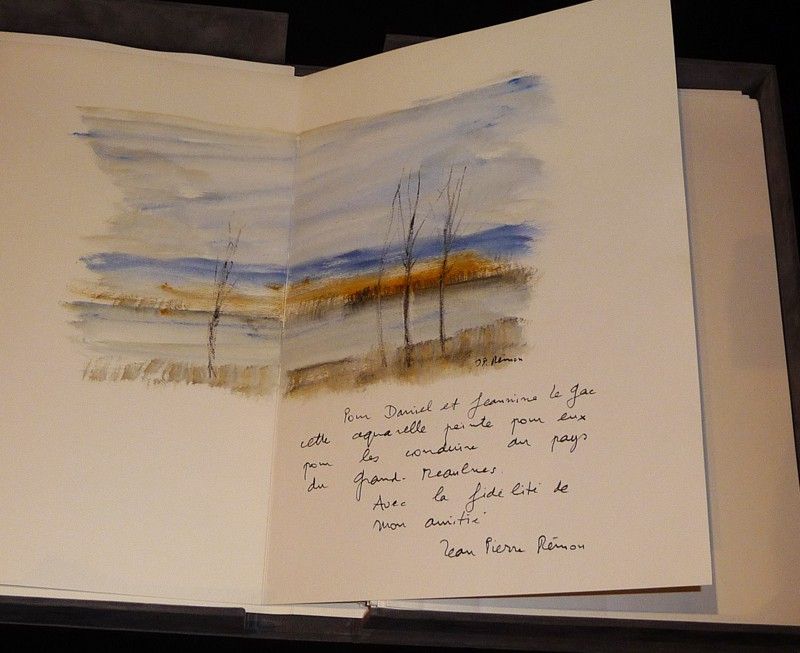 JP. Rémon
Pour Daniel et Jeannine Le Gac
cette aquarelle peinte pour eux
pour les conduire au pays
du Grand-Meaulnes.
Avec la fidélité de
mon amitié
Jean Pierre Rémon